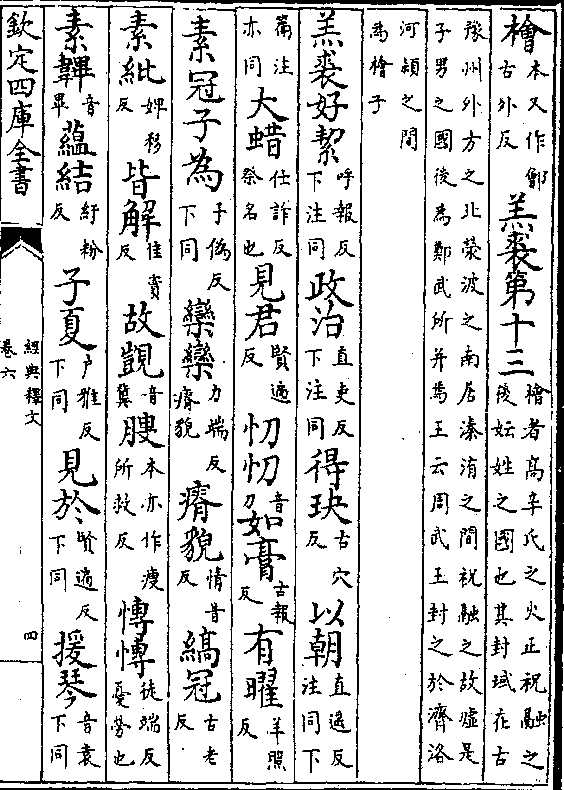 檜本又作鄶古外反羔裘第十三檜者高辛氏之火正祝融之後妘姓之國也其封域在古
豫州外方之北滎波之南居溱洧之間祝融之故墟是子男之國後為鄭武所并焉王云周武王封之於濟洛
河潁之間為檜子
羔裘好絜呼報反下注同政治直吏反下注同得玦古穴反以朝直遙反注同下
篇注亦同大蜡仕詐反祭名也見君賢遍反忉忉音刀如膏古報反有曜羊照反
素冠子為于偽反下同欒欒力端反瘠貌瘠貌情昔反縞冠古老反
素紕婢移反皆解佳賣反故覬音冀膄本亦作瘦所救反慱慱徒端反憂勞也
素韠音畢蘊結紆粉反子夏户雅反下同見於賢遍反下同援琴音袁下同
欽定四庫全書
經典釋文
卷六
四